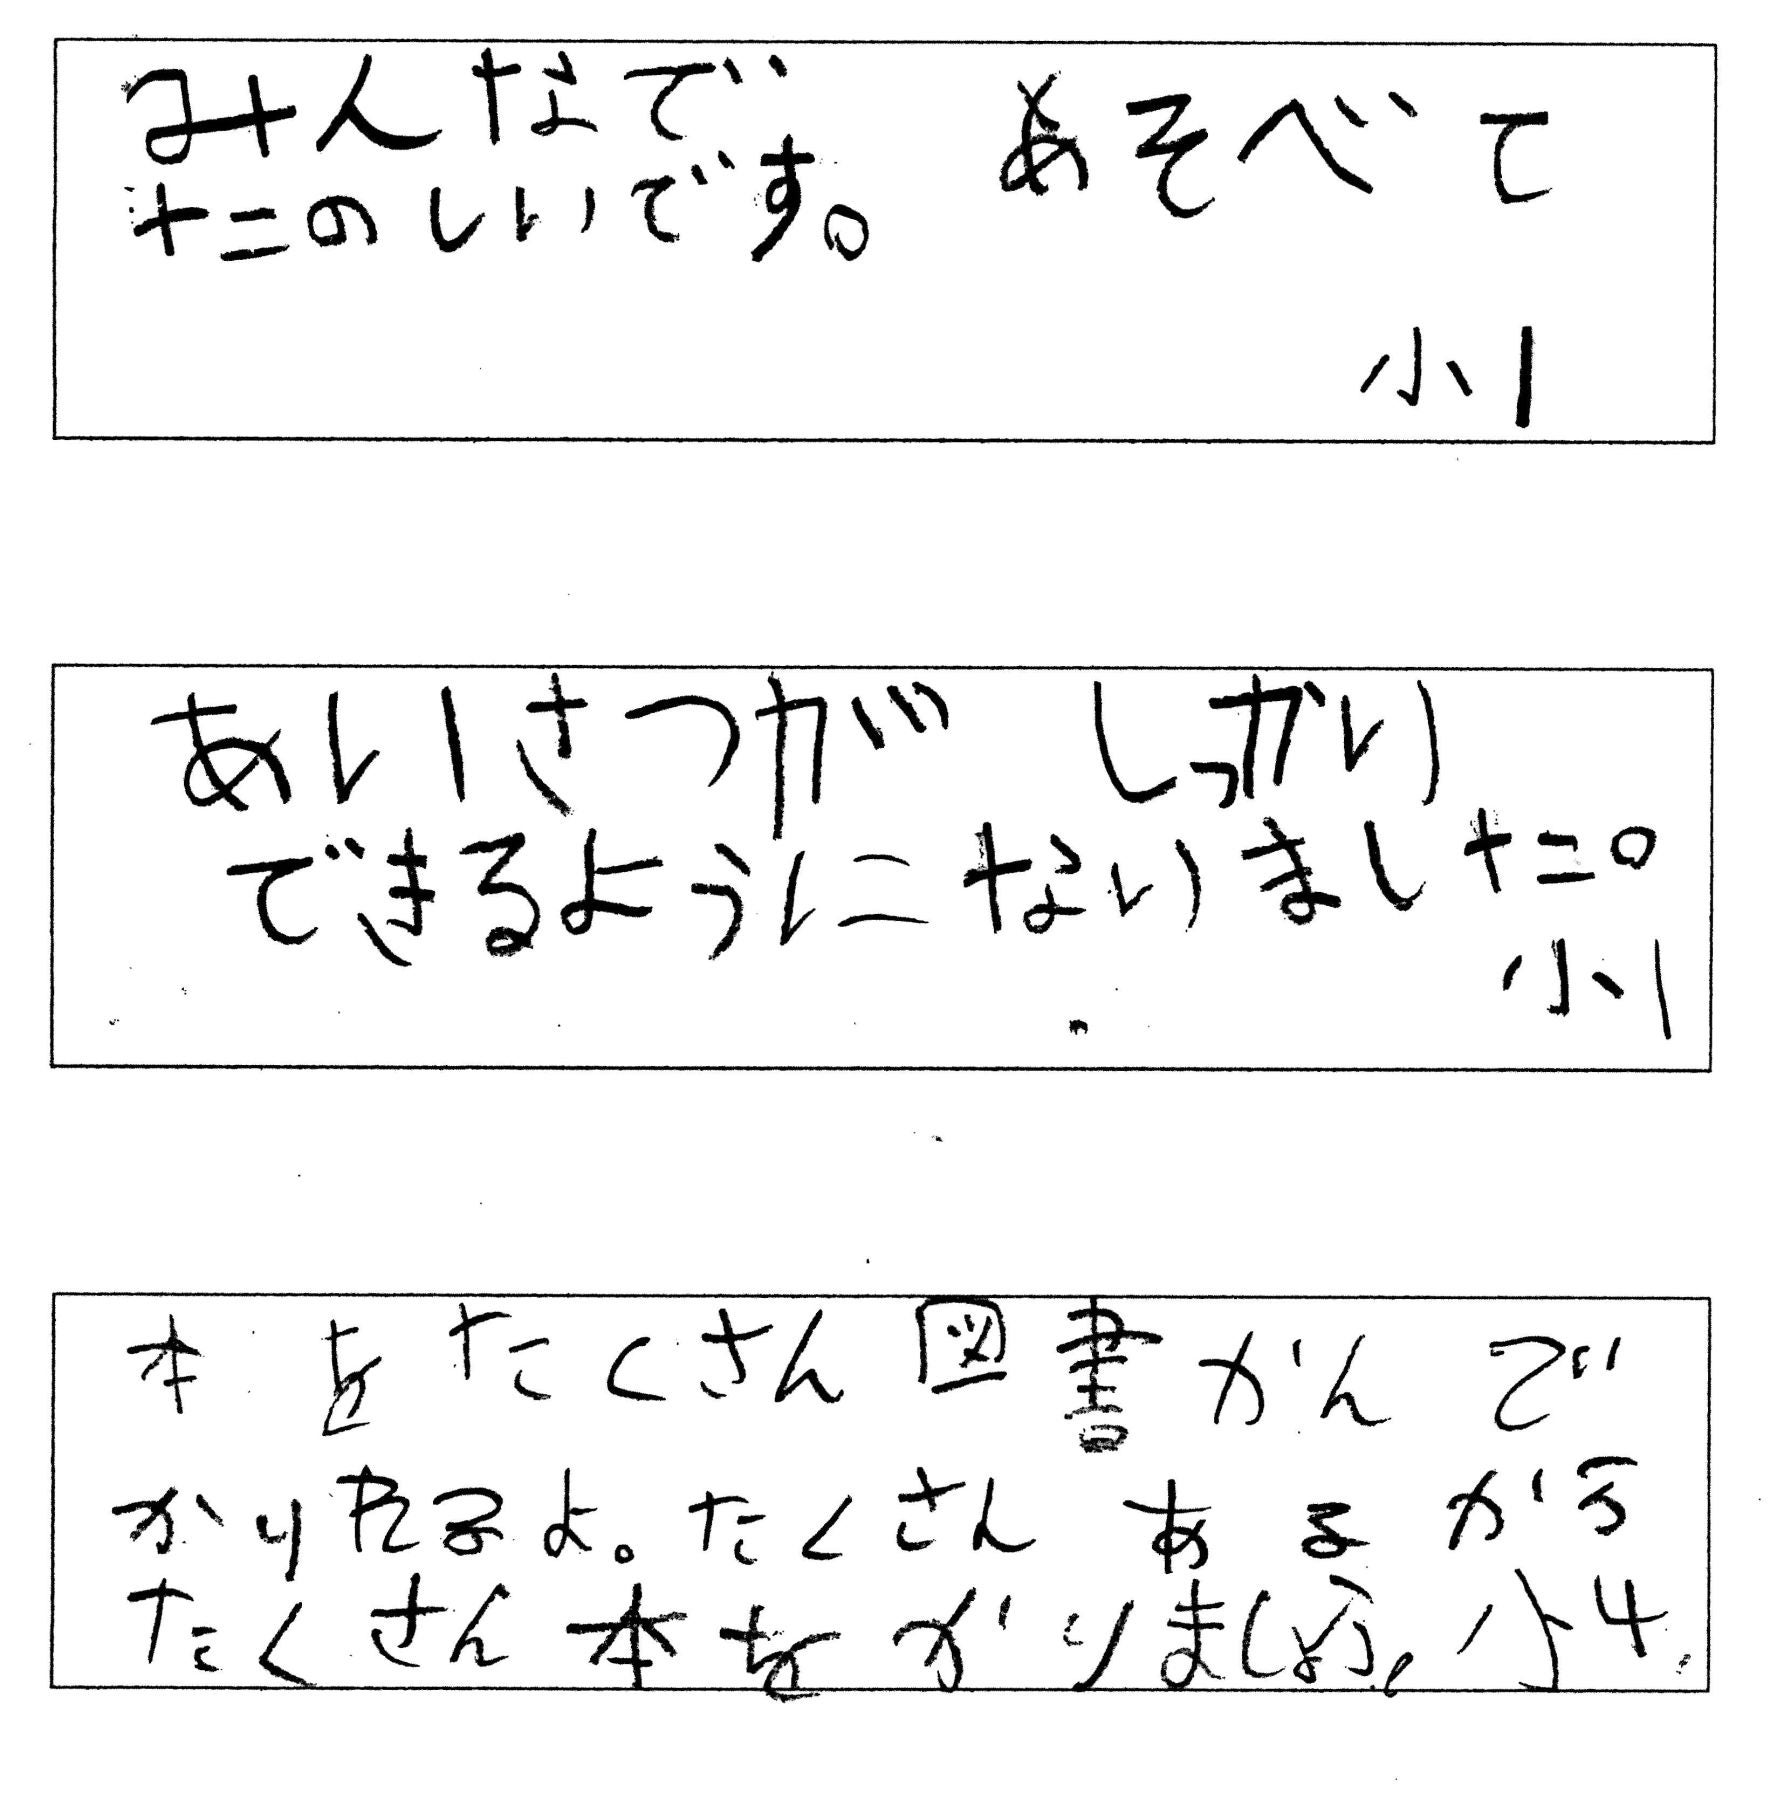 みんなで あそべて
たのしいです。
小1
あいさつが しっかり
できるようにないました。
小1
本をたくさん図書かんで
かりれるよ。たくさんあるから
たくさん本をかりましょう。小4